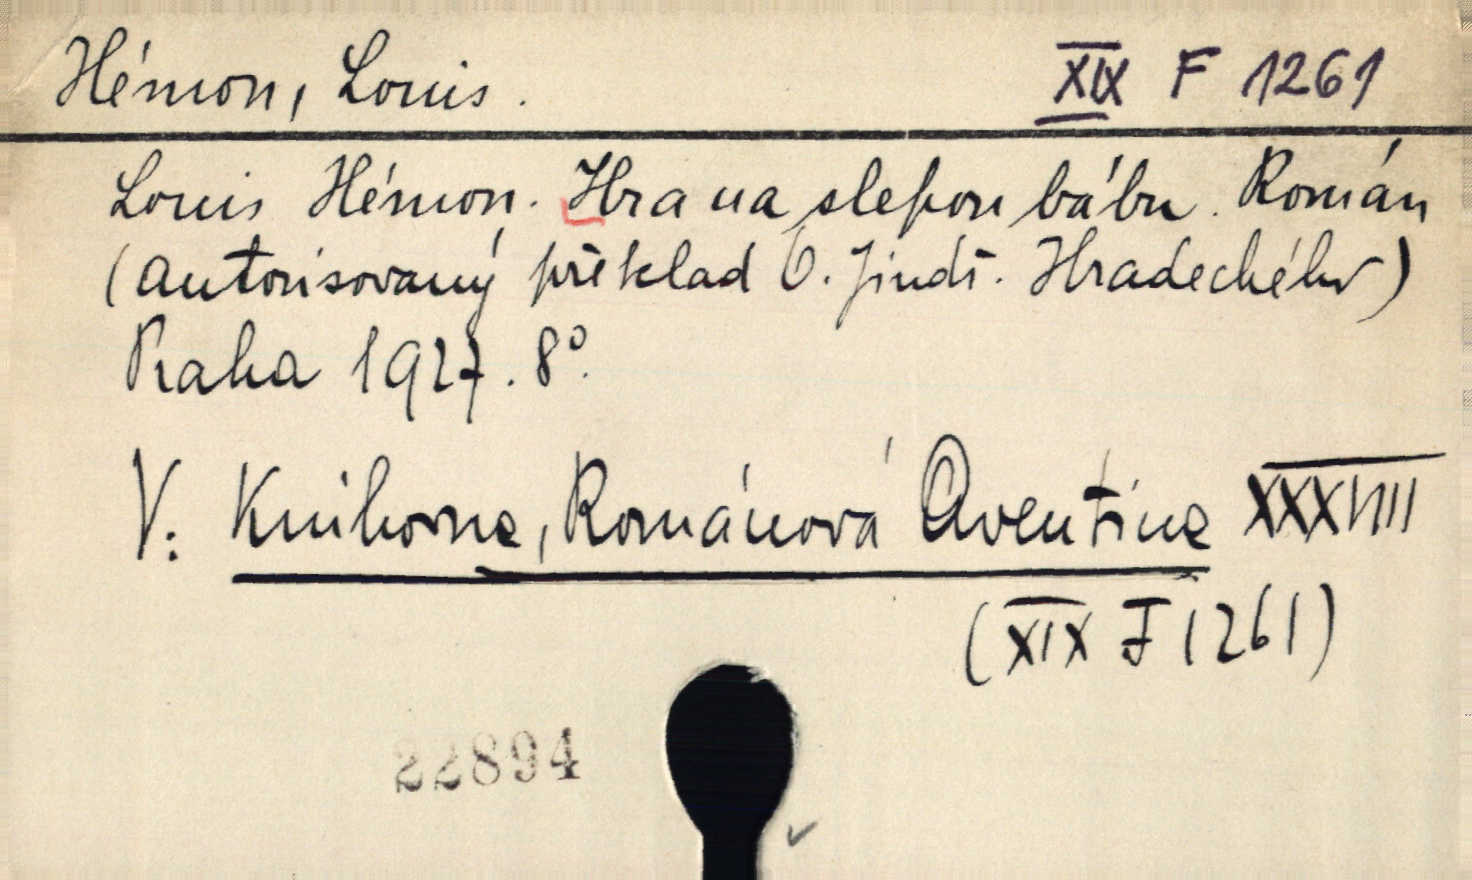 Hémon, Louis. XIX F 1261
Louis Hémon. Hra na slepou bábu. Román
(Autorisovaný překlad O. Jindř. Hradeckého)
Praha 1927. 8°.
V: Knihovna, Románová Aventina XXXVIII
(XIX F 1261)
22894